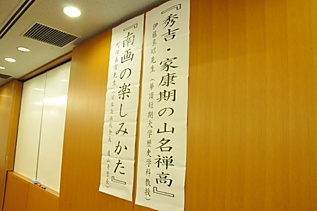 『秀吉・家康期の山名禅高』
伊藤真昭先生（華頂短期大学歴史学科教授）
『南画の楽しみかた』